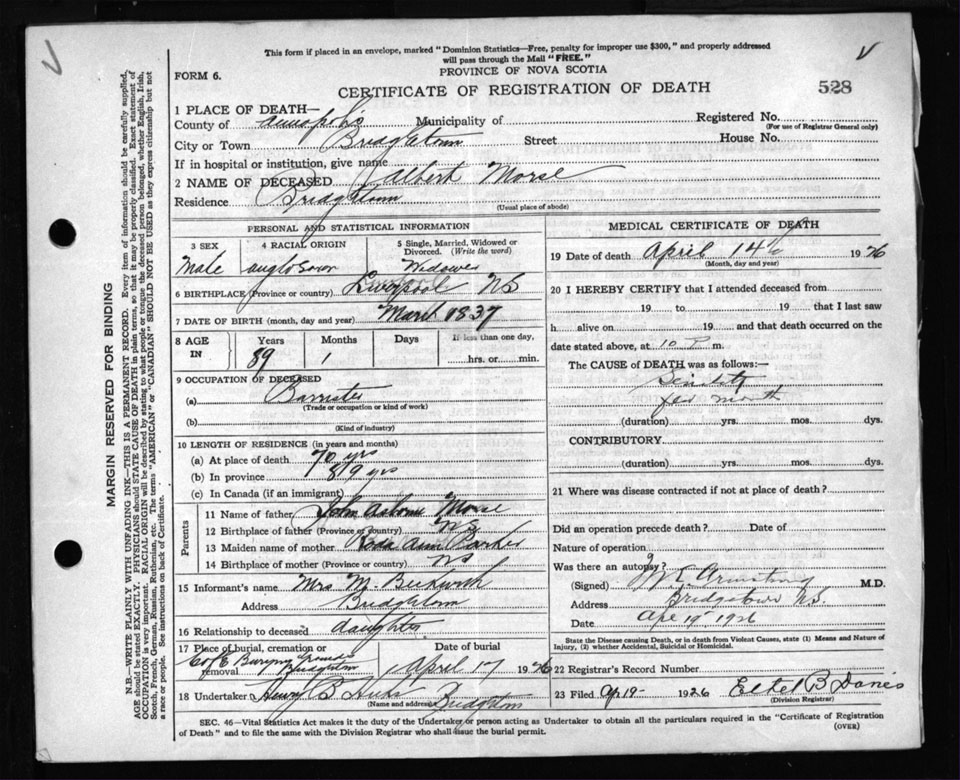 This form if placed in an envelope, marked "Dominion Statistics—Free, penalty for improper use $300," and properly addressed
will pass through the Mail "FREE."
PROVINCE OF NOVA SCOTIA
FORM 6.
CERTIFICATE OF REGISTRATION OF DEATH
528
1 PLACE OF DEATH—
County of Annapolis Municipality of Registered No.
(For use of Registrar General only)
City or Town Bridgetown Street House No.
If in hospital or institution, give name
2 NAME OF DECEASED Albert Morse
Residence Bridgetown
(Usual place of abode)
PERSONAL AND STATISTICAL INFORMATION
3 SEX 4 RACIAL ORIGIN 5 Single, Married, Widowed or Divorced. (Write the word)
Male anglo Saxon Widower
6 BIRTHPLACE (Province or country) Liverpool NS
7 DATE OF BIRTH (month, day and year) March 1837
8 AGE IN Years Months Days If less than one day,
89 1 hrs. or min.
9 OCCUPATION OF DECEASED
(a) Barrister
(Trade or occupation or kind of work)
(b)
(Kind of industry)
10 LENGTH OF RESIDENCE (in years and months)
(a) At place of death 70 yrs
(b) In province 89 yrs
(c) In Canada (if an immigrant)
Parents
11 Name of father John Morse
12 Birthplace of father (Province or country) NS
13 Maiden name of mother Ann Parker
14 Birthplace of mother (Province or country) NS
15 Informant's name Mrs M. Beckwith
Address Bridgetown
16 Relationship to deceased daughter
17 Place of burial, cremation or removal C of E Burying Grounds Bridgetown April 17 1926
18 Undertaker Henry B Hicks Bridgetown
(Name and address)
MEDICAL CERTIFICATE OF DEATH
19 Date of death April 14th 1926
(Month, day and year)
20 I HEREBY CERTIFY that I attended deceased from
19 to 19 that I last saw
h alive on 19 and that death occurred on the
date stated above, at 10 P m.
The CAUSE of DEATH was as follows:—
Senility
few month
(duration) yrs. mos. dys.
CONTRIBUTORY
(duration) yrs. mos. dys.
21 Where was disease contracted if not at place of death?
Did an operation precede death? Date of
Nature of operation
Was there an autopsy?
(Signed) Armstrong M.D.
Address Bridgetown NS.
Date Apr 19 1926
State the Disease causing Death, or in death from Violent Causes, state (1) Means and Nature of
Injury, (2) whether Accidental, Suicidal or Homicidal.
22 Registrar's Record Number
23 Filed Ap 19- 1926 Ethel B Davies
(Division Registrar)
SEC. 46—Vital Statistics Act makes it the duty of the Undertaker or person acting as Undertaker to obtain all the particulars required in the "Certificate of Registration
of Death" and to file the same with the Division Registrar who shall issue the burial permit.
(OVER)
MARGIN RESERVED FOR BINDING
N.B.—WRITE PLAINLY WITH UNFADING INK—THIS IS A PERMANENT RECORD. Every item of information should be carefully supplied.
AGE should be stated EXACTLY. PHYSICIANS should STATE CAUSE OF DEATH in plain terms, so that it may be properly classified. Exact statement of
OCCUPATION is very important. RACIAL ORIGIN will be described by stating to what people or tongue the deceased person belonged, whether English, Irish,
Scotch, French, German, Russian, Ruthenian, etc. The terms "AMERICAN" or "CANADIAN" SHOULD NOT BE USED as they express citizenship but not
a race or people. See instructions on back of Certificate.